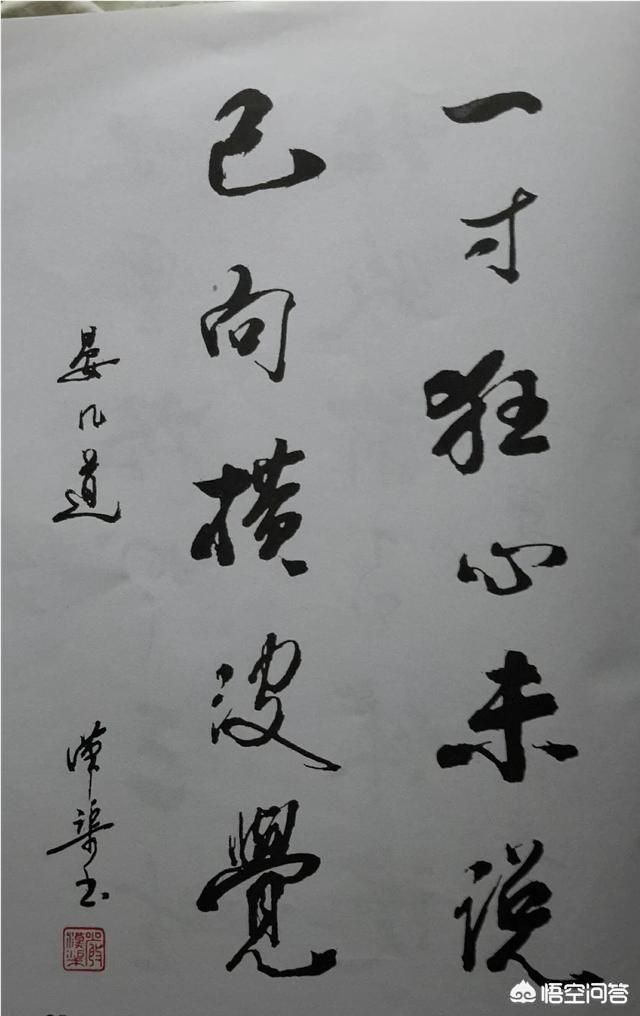 一寸狂心未说
已向横波覺
晏几道
漢渠书
悟空问答